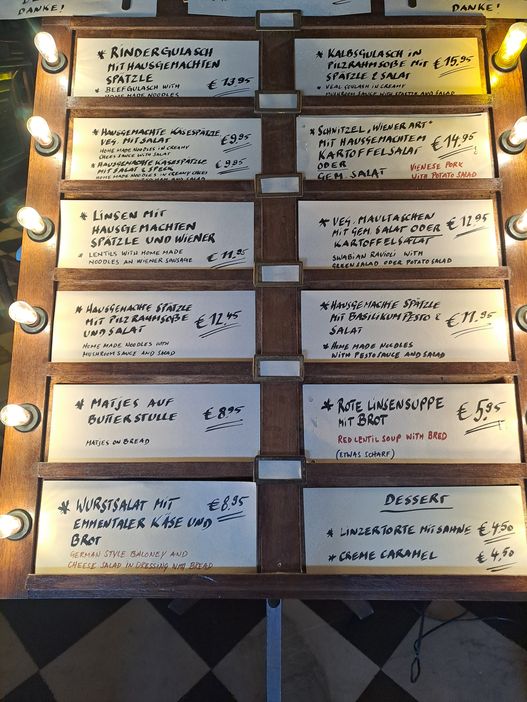 DANKE!
DANKE!
* RINDERGULASCH
MIT HAUSGEMACHTEN
SPÄTZLE
€ 13,95
* BEEF GULASCH WITH
HOME MADE NOODLES
* KALBSGULASCH IN
PILZRAHMSOßE MIT
SPÄTZLE & SALAT
€ 15,95
* VEAL GULASH IN CREAMY
MUSHROOM SAUCE WITH SPÄTZLE AND SALAD
* HAUSGEMACHTE KÄSESPÄTZLE
VEG. MIT SALAT
€ 9,95
HOME MADE NOODLES IN CREAMY
CHEES SAUCE WITH SALAT
* HAUSGEMACHTE KÄSESPÄTZLE
MIT SALAT & SPECK
€ 9,95
HOME MADE NOODLES IN CREAMY CHEES
* SCHNITZEL "WIENER ART"
MIT HAUSGEMACHTEM
KARTOFFELSALAT
ODER
GEM. SALAT
€ 14,95
VIENESE PORK
WITH POTATO SALAD
* LINSEN MIT
HAUSGEMACHTEN
SPÄTZLE UND WIENER
€ 11,95
* LENTILS WITH HOME MADE
NOODLES AN WIENER SAUSAGE
* VEG. MAULTASCHEN
MIT GEM. SALAT ODER
KARTOFFELSALAT
€ 12,95
SWABIAN RAVIOLI WITH
GREEN SALAD ODER POTATO SALAD
* HAUSGEMACHTE SPÄTZLE
MIT PILZRAHMSOßE
UND SALAT
€ 12,45
HOME MADE NOODLES WITH
MUSHROOM SAUCE AND SALAD
* HAUSGEMACHTE SPÄTZLE
MIT BASILIKUM PESTO &
SALAT
€ 11,95
* HOME MADE NOODLES
WITH PESTO SAUCE AND SALAD
* MATJES AUF
BUTTERSTULLE
€ 8,95
MATJES ON BREAD
* ROTE LINSENSUPPE
MIT BROT
€ 5,95
RED LENTIL SOUP WITH BRED
(ETWAS SCHARF)
* WURSTSALAT MIT
EMMENTALER KÄSE UND
BROT
€ 8,95
GERMAN STYLE BALONEY AND
CHEESE SALAD IN DRESSING WITH BREAD
DESSERT
* LINZERTORTE MIT SAHNE € 4,50
* CREME CARAMEL € 4,50